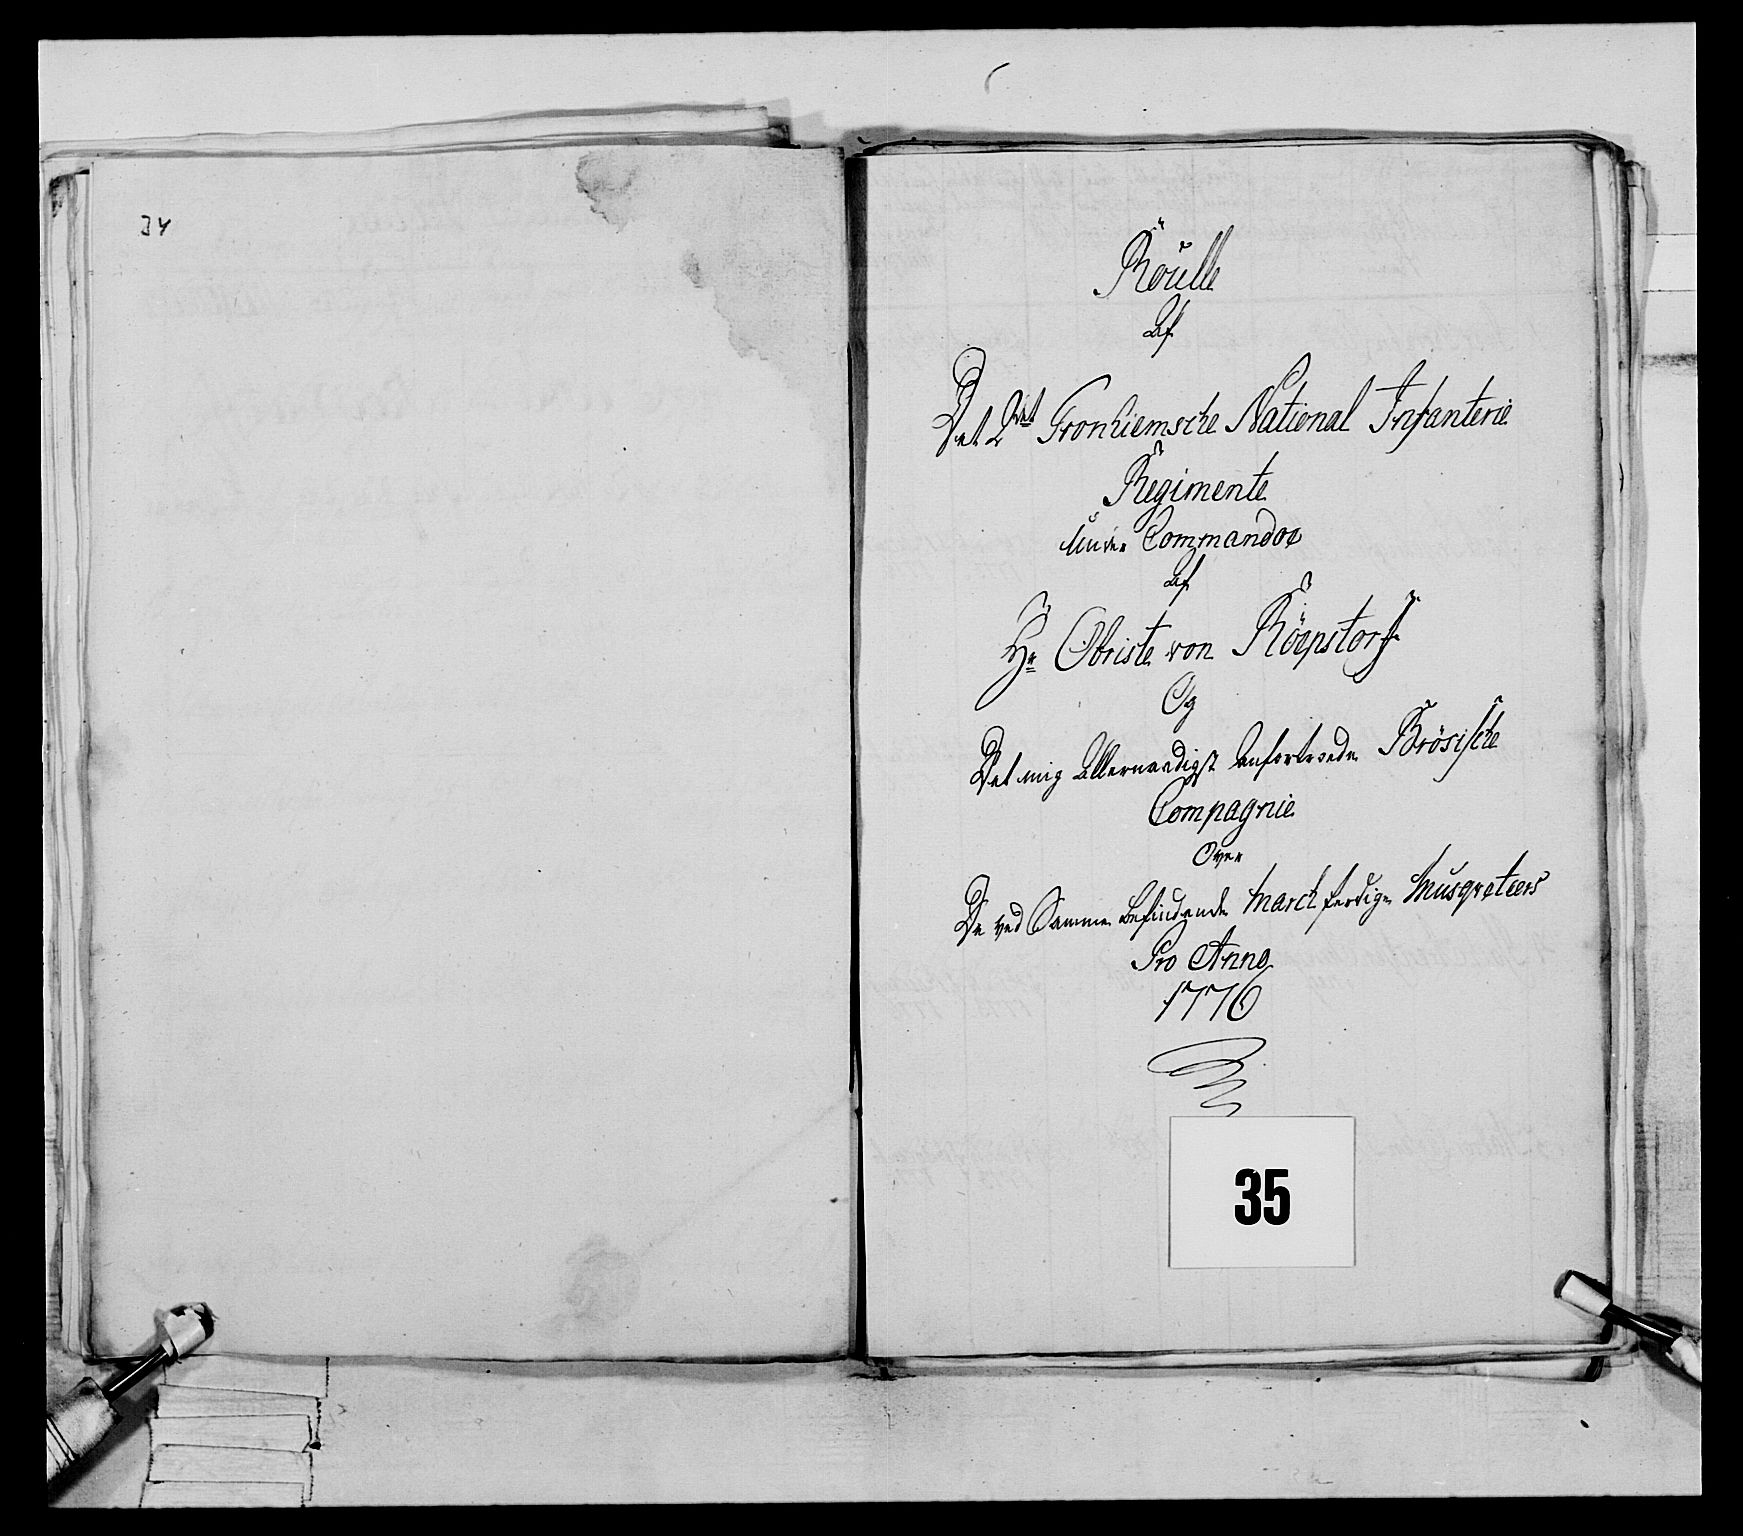 34
Roulle
Af
Det 2det Tronhiemsche National Infanterie
Regimente
Under Commandoe
af
Hr Obriste von Röepstorff
Og
Det mig Allernaadigst anfortroede Brösische
Compagnie
Over
De ved Samme befindende March færdige Musqveteers
Pro Anno
1776
35